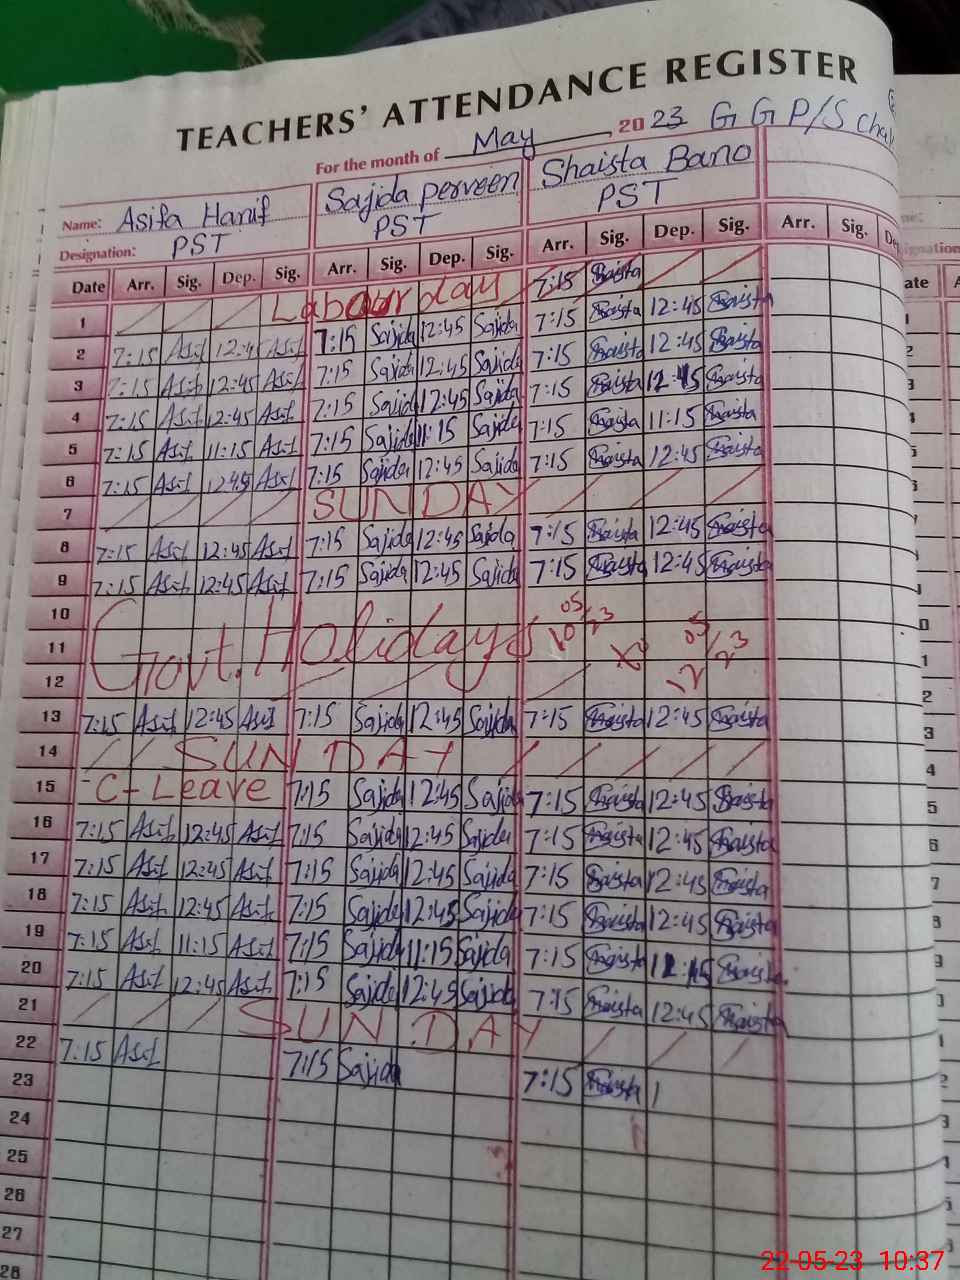 TEACHERS' ATTENDANCE REGISTER
For the month of May 2023 G G P/S
Name: Asifa Hanif Sajida perveen Shaista Bano
Designation: PST PST PST
Date Arr. Sig. Dep. Sig. Arr. Sig. Dep. Sig. Arr. Sig. Dep. Sig. Arr. Sig.
1 Labour day 7:15 Shaista
2 7:15 Asif 12:45 Asif 7:15 Sajida 12:45 Sajida 7:15 Shaista 12:45 Shaista
3 7:15 Asif 12:45 Asif 7:15 Sajida 12:45 Sajida 7:15 Shaista 12:45 Shaista
4 7:15 Asif 12:45 Asif 7:15 Sajida 12:45 Sajida 7:15 Shaista 12:45 Shaista
5 7:15 Asif 11:15 Asif 7:15 Sajida 11:15 Sajida 7:15 Shaista 11:15 Shaista
6 7:15 Asif 12:45 Asif 7:15 Sajida 12:45 Sajida 7:15 Shaista 12:45 Shaista
7 SUNDAY
8 7:15 Asif 12:45 Asif 7:15 Sajida 12:45 Sajida 7:15 Shaista 12:45 Shaista
9 7:15 Asif 12:45 Asif 7:15 Sajida 12:45 Sajida 7:15 Shaista 12:45 Shaista
10
11 Govt. Holidays 10/05/23 12/05/23
12
13 7:15 Asif 12:45 Asif 7:15 Sajida 12:45 Sajida 7:15 Shaista 12:45 Shaista
14 SUNDAY
15 C-Leave 7:15 Sajida 12:45 Sajida 7:15 Shaista 12:45 Shaista
16 7:15 Asif 12:45 Asif 7:15 Sajida 12:45 Sajida 7:15 Shaista 12:45 Shaista
17 7:15 Asif 12:45 Asif 7:15 Sajida 12:45 Sajida 7:15 Shaista 12:45 Shaista
18 7:15 Asif 12:45 Asif 7:15 Sajida 12:45 Sajida 7:15 Shaista 12:45 Shaista
19 7:15 Asif 11:15 Asif 7:15 Sajida 11:15 Sajida 7:15 Shaista Shaista
20 7:15 Asif 12:45 Asif 7:15 Sajida 12:45 Sajida 7:15 Shaista 12:45 Shaista
21 SUNDAY
22 7:15 Asif 7:15 Sajida 7:15 Shaista
23
24
25
26
27
28
22-05-23 10:37